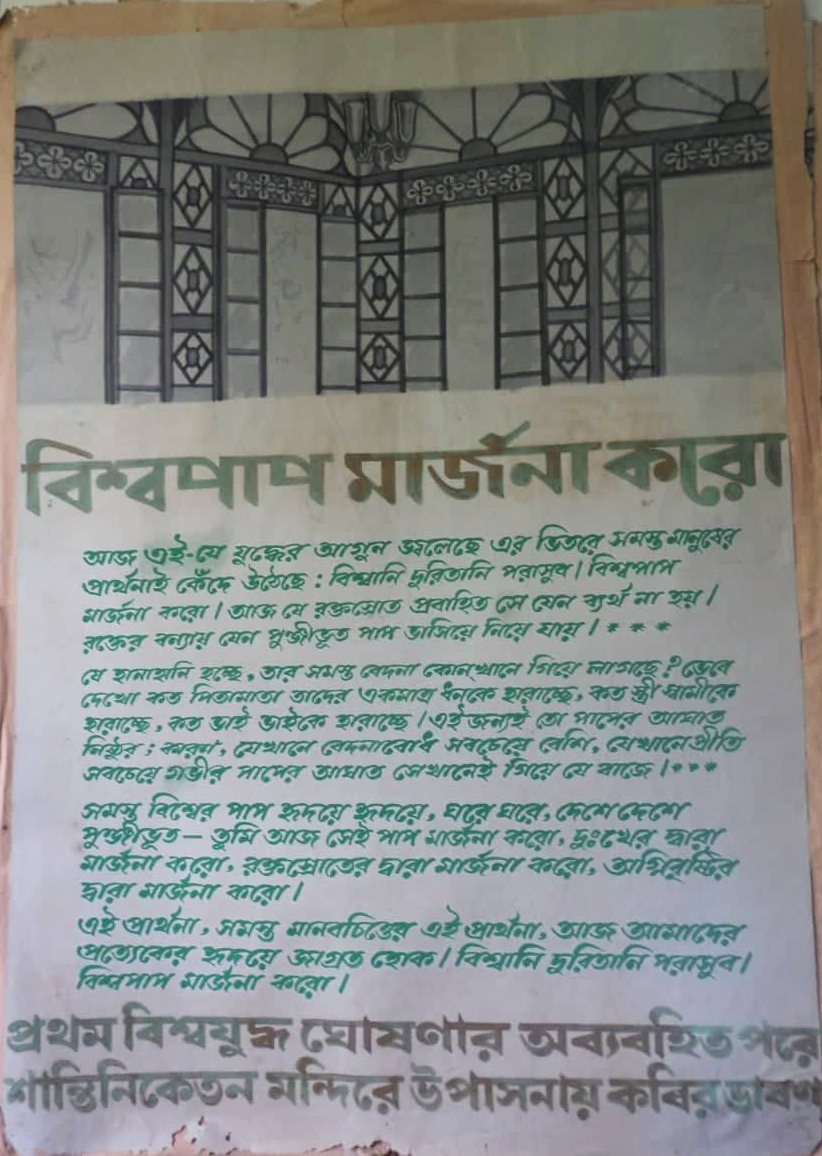 বিশ্বপাপ মার্জনা করো
আজ এই-যে যুদ্ধের আগুন জ্বলেছে এর ভিতরে সমস্ত মানুষের
প্রার্থনাই কেঁদে উঠেছে : বিশ্বানি দুরিতানি পরাসুব। বিশ্বপাপ
মার্জনা করো। আজ যে রক্তস্রোত প্রবাহিত সে যেন ব্যর্থ না হয়।
রক্তের বন্যায় যেন পুঞ্জীভূত পাপ ভাসিয়ে নিয়ে যায়। * * *
যে হানাহানি হচ্ছে, তার সমস্ত বেদনা কোন্‌খানে গিয়ে লাগছে? ভেবে
দেখো কত পিতামাতা তাদের একমাত্র ধনকে হারাচ্ছে, কত স্ত্রী স্বামীকে
হারাচ্ছে, কত ভাই ভাইকে হারাচ্ছে। এই জন্যই তো পাপের আঘাত
নিষ্ঠুর ; কারণ, যেখানে বেদনাবোধ সবচেয়ে বেশি, যেখানে প্রীতি
সবচেয়ে গভীর পাপের আঘাত সেখানেই গিয়ে যে বাজে। * * *
সমস্ত বিশ্বের পাপ হৃদয়ে হৃদয়ে, ঘরে ঘরে, দেশে দেশে
পুঞ্জীভূত— তুমি আজ সেই পাপ মার্জনা করো, দুঃখের দ্বারা
মার্জনা করো, রক্তস্রোতের দ্বারা মার্জনা করো, অগ্নিবৃষ্টির
দ্বারা মার্জনা করো।
এই প্রার্থনা, সমস্ত মানবচিত্তের এই প্রার্থনা, আজ আমাদের
প্রত্যেকের হৃদয়ে জাগ্রত হোক। বিশ্বানি দুরিতানি পরাসুব।
বিশ্বপাপ মার্জনা করো।
প্রথম বিশ্বযুদ্ধ ঘোষণার অব্যবহিত পরে
শান্তিনিকেতন মন্দিরে উপাসনায় কবির ভাষণ